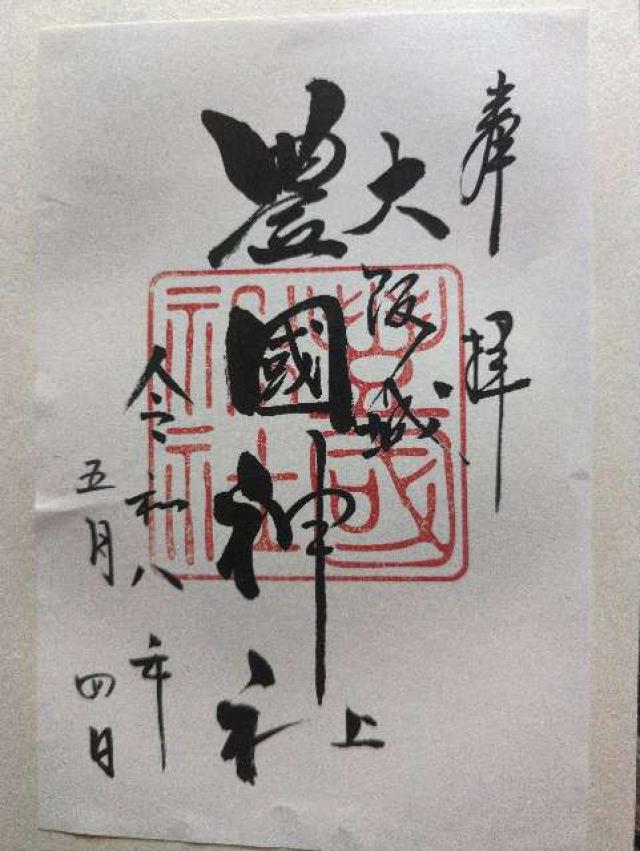 奉拝
大阪城上
豊國神社
令和八年
五月四日
豐國
神社